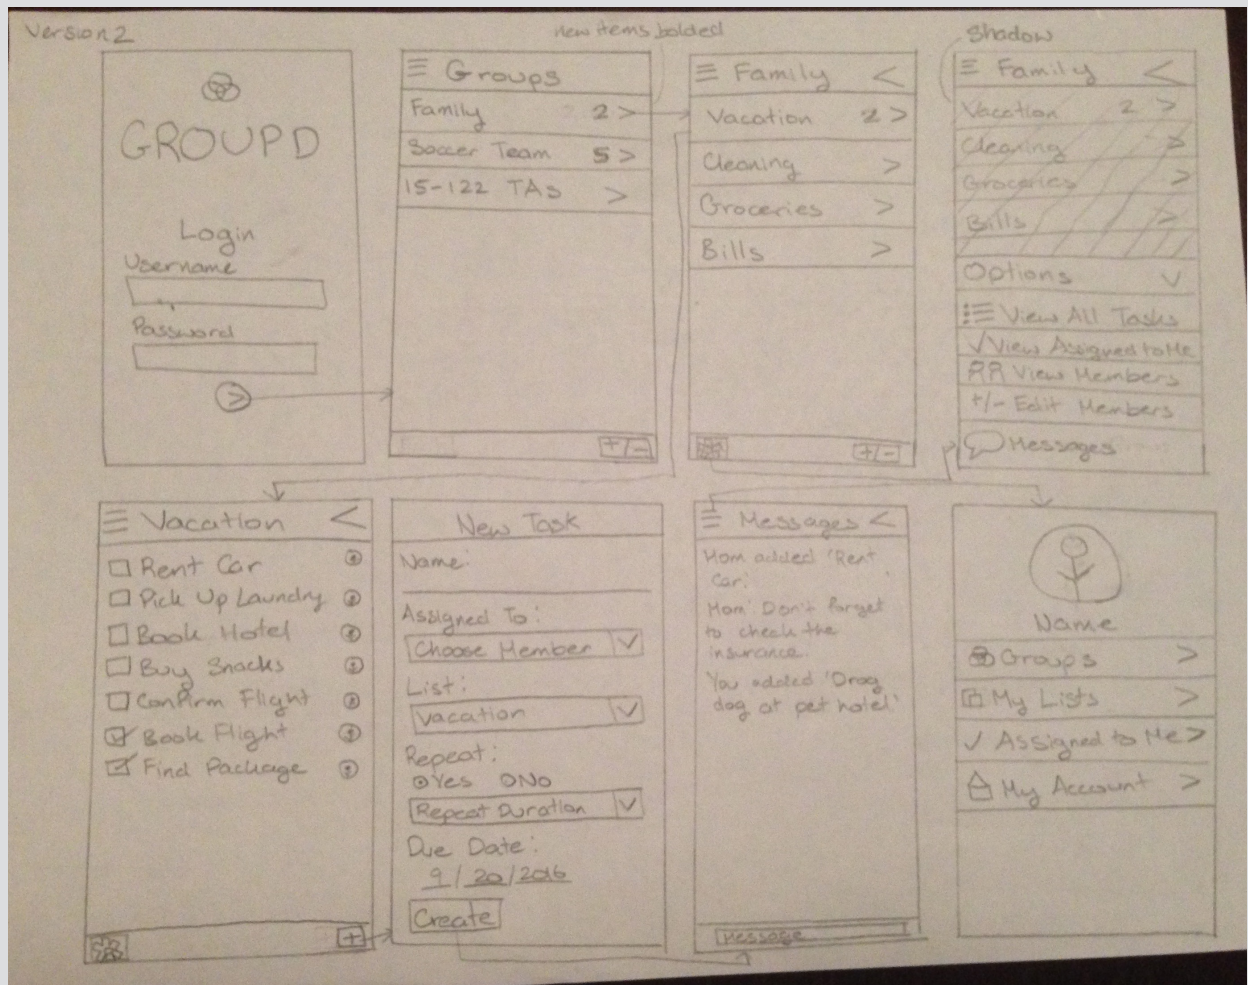 Version 2
New items bolded
Shadow
GROUPD
Login
Username
Password
>
Groups
Family 2 >
Soccer Team 5 >
15-122 TAs >
+/-
Family <
Vacation 2 >
Cleaning >
Groceries >
Bills >
+/-
Family <
Vacation 2 >
Cleaning >
Groceries >
Bills >
Options
View All Tasks
View Assigned to Me
View Members
+/- Edit Members
Messages
Vacation <
Rent Car
Pick Up Laundry
Book Hotel
Buy Snacks
Confirm Flight
Book Flight
Find Package
+
New Task
Name:
Assigned To:
Choose Member
List:
Vacation
Repeat:
Yes No
Repeat Duration
Due Date:
9/20/2016
Create
Messages <
Mom added 'Rent
Car.'
Mom: Don't forget
to check the
insurance.
You added 'Drag
dog at pet hotel'
Message
Name
Groups >
My Lists >
Assigned to Me >
My Account >